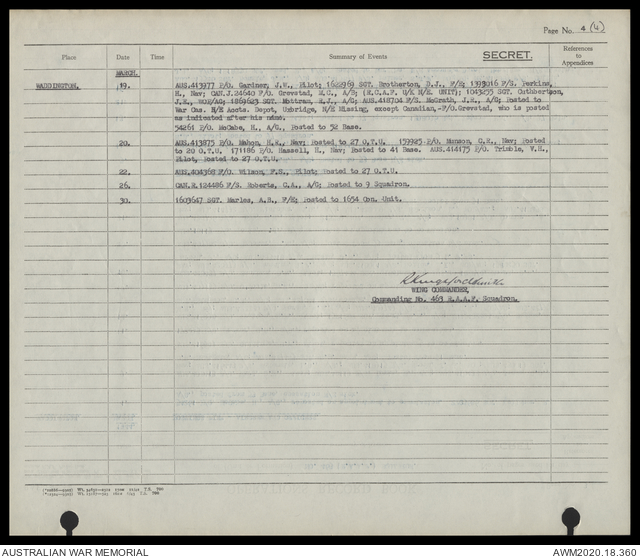 Page No. 4 (4)
Place Date Time Summary of Events SECRET. References to Appendices
MARCH.
WADDINGTON. 19. AUS.413977 P/O. Gardner, J.F., Pilot; 1622969 SGT. Brotherton, D.J., F/E; F/S. Perkins,
H., Nav; CAN.J.24640 F/O. Grevstad, A/B; (R.C.A.F. U/K N/E UNIT); 1043255 SGT. Cuthbertson,
1869623 SGT. Mottram, A/G; AUS.418704 F/S. McGrath, J.R., A/G; Posted to
War Cas. N/E Accts. Depot, Uxbridge, N/E Missing, except Canadian,-F/O.Grevstad, who is posted
as indicated after his name.
54261 F/O. McCabe, H., A/G., Posted to 52 Base.
20. AUS.413875 F/O. Mahon, H.R., Nav; Posted to 27 O.T.U. 159925 F/O. Munson, C.R., Nav; Posted
to 20 O.T.U. 171186 F/O. Hassell, H., Nav; Posted to 41 Base. AUS.414175 F/O. Trimble, V.H.,
Pilot, Posted to 27 O.T.U.
22. AUS.404368 F/O. Wilson, F.S., Pilot; Posted to 27 O.T.U.
26. CAN.R.124486 F/S. Roberts, C.A., A/G; Posted to 9 Squadron.
30. 1603647 SGT. Marles, A.B., F/E; Posted to 1654 Con. Unit.
WING COMMANDER,
Commanding No. 463 R.A.A.F. Squadron.
AUSTRALIAN WAR MEMORIAL AWM2020.18.360